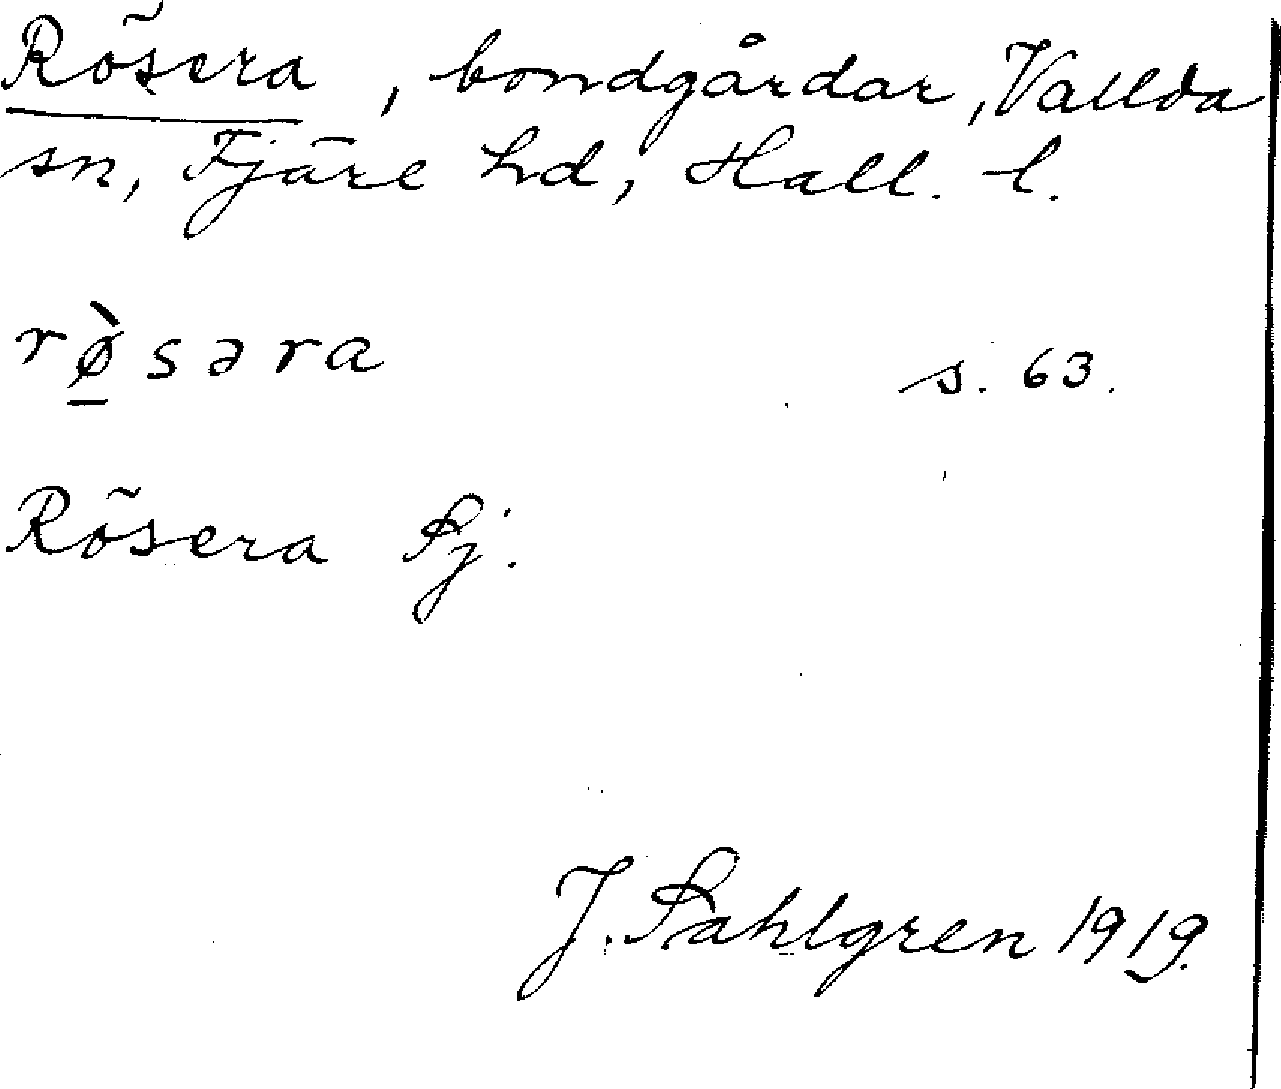 Rösera, bondgårdar, Vallda
sn, Fjäre hd, Hall. l.
rø̱̀səra s. 63.
Rösera Sj.
J. Sahlgren 1919.